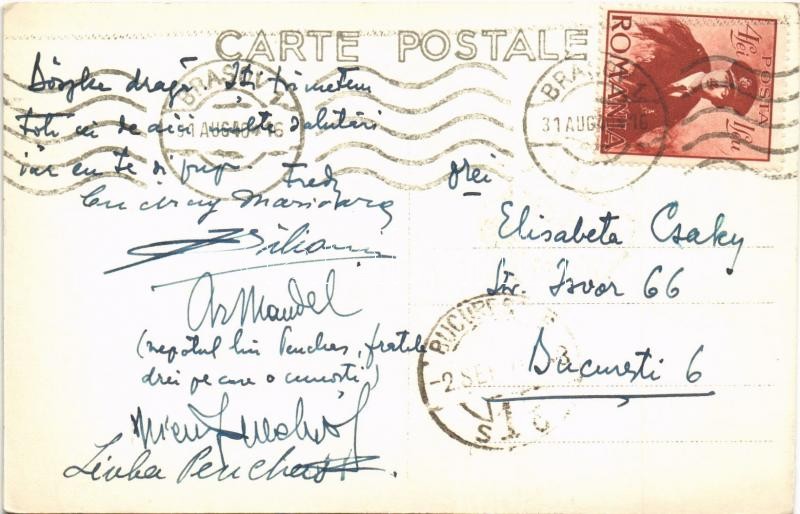 CARTE POSTALE
dragă Îți trimetem
Toți cu de aici multe salutări
iar eu te și pup
Fredy
Marioara
Mandel
(nepotul lui Penchas, fratele
drei pe care o cunoști)
Penchas
BRAȘOV
31 AUG 40 16
BRAȘOV
31 AUG 16
POSTA
ROMANIA
1 Leu
Drei
Elisabeta Csaky
Str. Isvor 66
București 6
BUCUREȘTI
-2 SEP